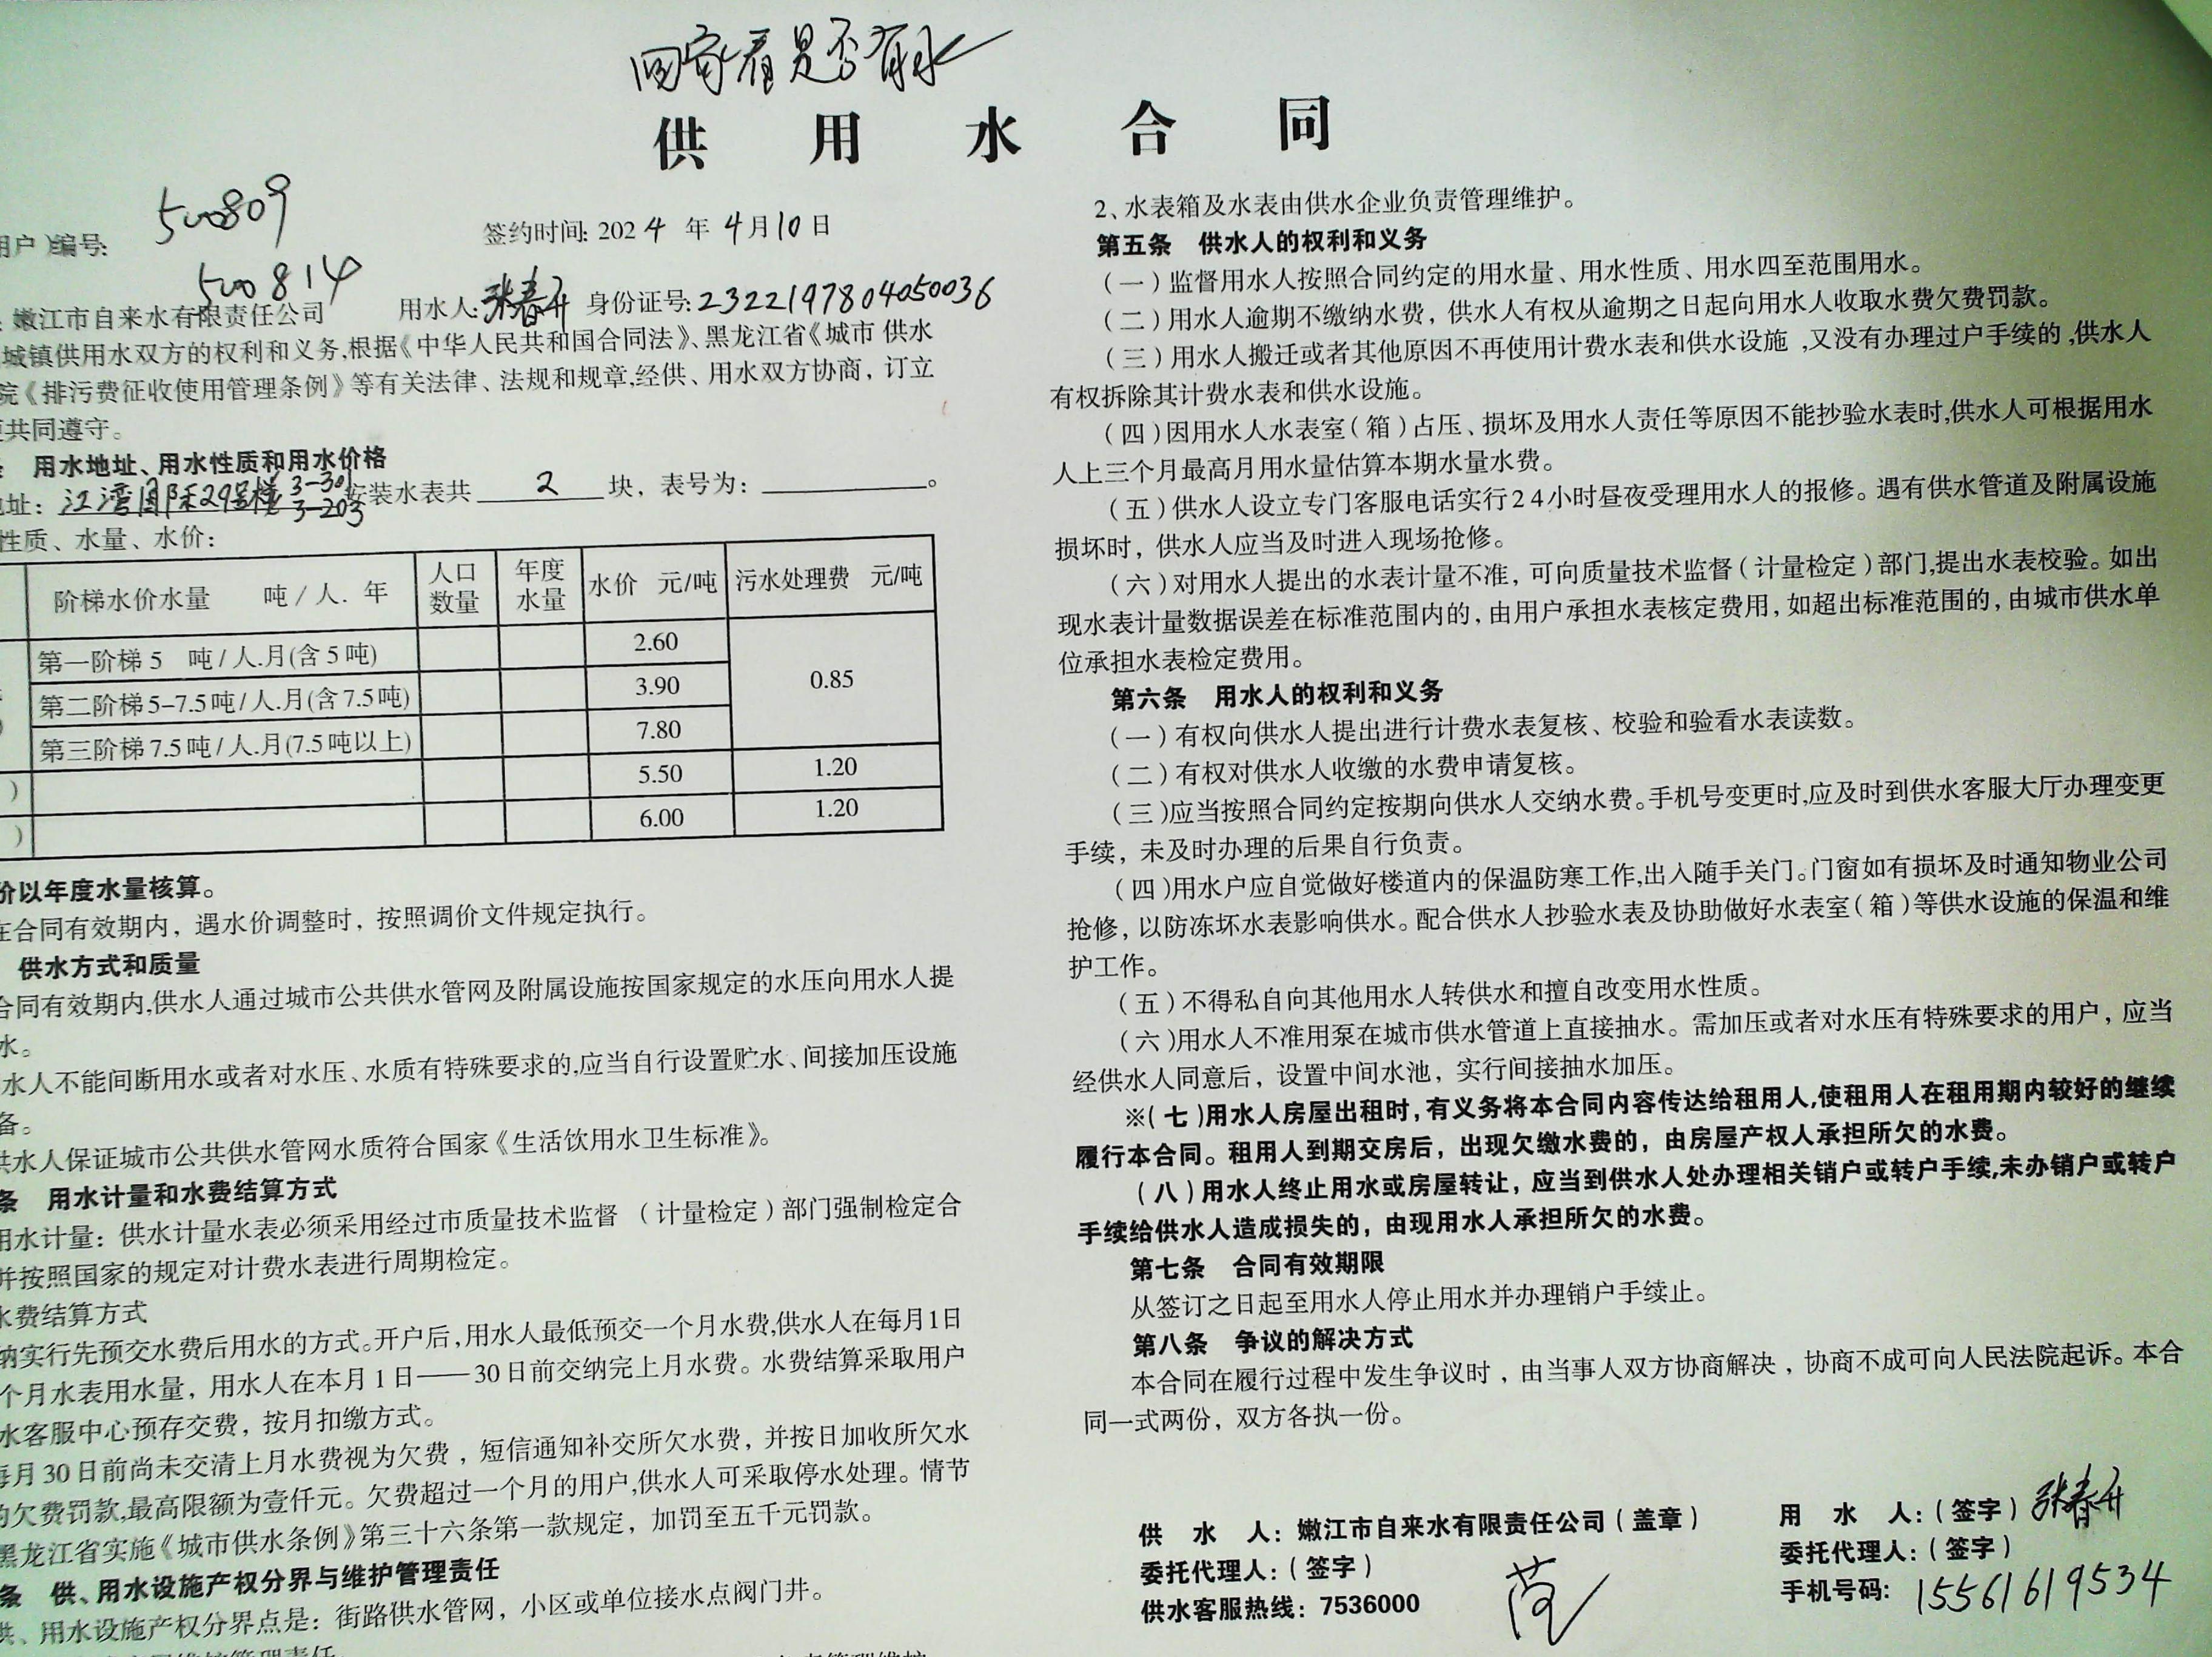 回家看是否有水
供用水合同
用户)编号:
500809
500814
签约时间: 2024年4月10日
: 嫩江市自来水有限责任公司 用水人: 张春升 身份证号: 23221197804050036
城镇供用水双方的权利和义务,根据《中华人民共和国合同法》、黑龙江省《城市 供水
院《排污费征收使用管理条例》等有关法律、法规和规章,经供、用水双方协商，订立
共同遵守。
用水地址、用水性质和用水价格
址：江湾国际29号楼 3-301 3-203 安装水表共 2 块，表号为：。
性质、水量、水价：
阶梯水价水量 吨/人. 年 人口数量 年度水量 水价 元/吨 污水处理费 元/吨
第一阶梯 5 吨/人.月(含 5 吨) 2.60 0.85
第二阶梯 5-7.5 吨/人.月(含 7.5 吨) 3.90
第三阶梯 7.5 吨/人.月(7.5 吨以上) 7.80
) 5.50 1.20
) 6.00 1.20
价以年度水量核算。
在合同有效期内，遇水价调整时，按照调价文件规定执行。
供水方式和质量
合同有效期内,供水人通过城市公共供水管网及附属设施按国家规定的水压向用水人提
水。
水人不能间断用水或者对水压、水质有特殊要求的,应当自行设置贮水、间接加压设施
备。
供水人保证城市公共供水管网水质符合国家《生活饮用水卫生标准》。
条 用水计量和水费结算方式
用水计量：供水计量水表必须采用经过市质量技术监督 （计量检定）部门强制检定合
并按照国家的规定对计费水表进行周期检定。
水费结算方式
纳实行先预交水费后用水的方式。开户后,用水人最低预交一个月水费,供水人在每月1日
个月水表用水量，用水人在本月 1 日——30 日前交纳完上月水费。水费结算采取用户
水客服中心预存交费，按月扣缴方式。
每月 30 日前尚未交清上月水费视为欠费，短信通知补交所欠水费，并按日加收所欠水
的欠费罚款,最高限额为壹仟元。欠费超过一个月的用户,供水人可采取停水处理。情节
黑龙江省实施《城市供水条例》第三十六条第一款规定，加罚至五千元罚款。
条 供、用水设施产权分界与维护管理责任
供、用水设施产权分界点是：街路供水管网，小区或单位接水点阀门井。
2、水表箱及水表由供水企业负责管理维护。
第五条 供水人的权利和义务
（一）监督用水人按照合同约定的用水量、用水性质、用水四至范围用水。
（二）用水人逾期不缴纳水费，供水人有权从逾期之日起向用水人收取水费欠费罚款。
（三）用水人搬迁或者其他原因不再使用计费水表和供水设施 ,又没有办理过户手续的 ,供水人
有权拆除其计费水表和供水设施。
（四）因用水人水表室（箱）占压、损坏及用水人责任等原因不能抄验水表时,供水人可根据用水
人上三个月最高月用水量估算本期水量水费。
（五）供水人设立专门客服电话实行24小时昼夜受理用水人的报修。遇有供水管道及附属设施
损坏时，供水人应当及时进入现场抢修。
（六）对用水人提出的水表计量不准，可向质量技术监督（计量检定）部门,提出水表校验。如出
现水表计量数据误差在标准范围内的，由用户承担水表核定费用，如超出标准范围的，由城市供水单
位承担水表检定费用。
第六条 用水人的权利和义务
（一）有权向供水人提出进行计费水表复核、校验和验看水表读数。
（二）有权对供水人收缴的水费申请复核。
（三）应当按照合同约定按期向供水人交纳水费。手机号变更时,应及时到供水客服大厅办理变更
手续，未及时办理的后果自行负责。
（四）用水户应自觉做好楼道内的保温防寒工作,出入随手关门。门窗如有损坏及时通知物业公司
抢修，以防冻坏水表影响供水。配合供水人抄验水表及协助做好水表室（箱）等供水设施的保温和维
护工作。
（五）不得私自向其他用水人转供水和擅自改变用水性质。
（六）用水人不准用泵在城市供水管道上直接抽水。需加压或者对水压有特殊要求的用户，应当
经供水人同意后，设置中间水池，实行间接抽水加压。
※（七）用水人房屋出租时，有义务将本合同内容传达给租用人,使租用人在租用期内较好的继续
履行本合同。租用人到期交房后，出现欠缴水费的，由房屋产权人承担所欠的水费。
（八）用水人终止用水或房屋转让，应当到供水人处办理相关销户或转户手续,未办销户或转户
手续给供水人造成损失的，由现用水人承担所欠的水费。
第七条 合同有效期限
从签订之日起至用水人停止用水并办理销户手续止。
第八条 争议的解决方式
本合同在履行过程中发生争议时，由当事人双方协商解决，协商不成可向人民法院起诉。本合
同一式两份，双方各执一份。
供 水 人：嫩江市自来水有限责任公司（盖章）
委托代理人：（签字）
供水客服热线：7536000
用 水 人：（签字）张春升
委托代理人：（签字）
手机号码: 15561619534